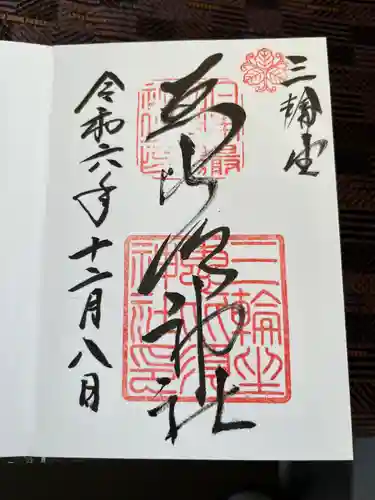 三輪坐
恵比須神社
令和六年十二月八日
三輪坐
神社印